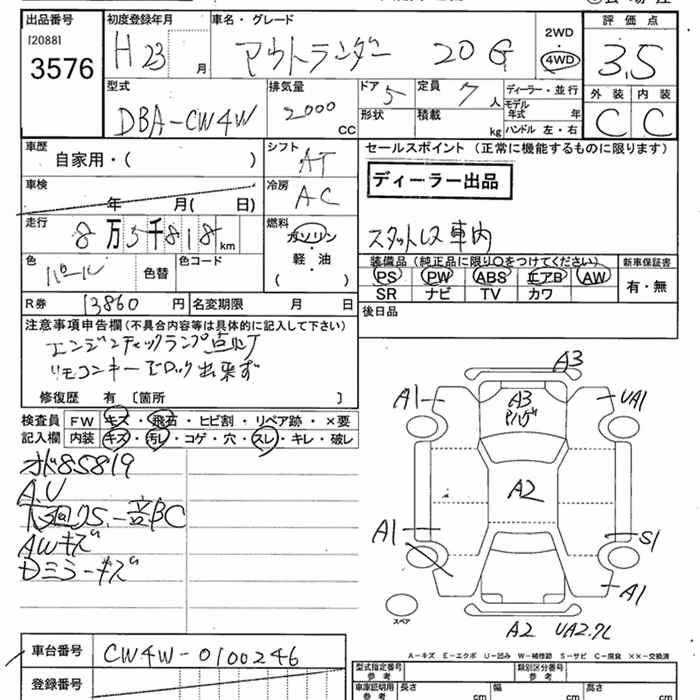 出品番号 初度登録年月 車名・グレード 評価点
[2088]
3576 H 23 月 アウトランダー 20 G 2WD 4WD 3.5
型式 排気量 ドア 5 定員 7 人 ディーラー・並行 外装 内装
DBA-CW4W 2000 CC 形状 積載 kg モデル年式 年 C C
ハンドル 左・右
車歴 シフト セールスポイント (正常に機能するものに限ります)
自家用・( ) AT
ディーラー出品
車検 冷房
年 月( 日) AC
走行 燃料
8万5千818 km ガソリン スタットレス車内
色 色替 色コード 軽・油 装備品 (純正品に限り○をつけてください) 新車保証書
パール ( ) PS PW ABS エアB AW 有・無
SR ナビ TV カワ
R券 13860 円 名変期限 月 日 後日品
注意事項申告欄 (不具合内容等は具体的に記入して下さい)
エンジンチェックランプ点灯
リモコンキーでロック出来ず
修復歴 有 〔箇所 〕
検査員 FW キズ・飛石・ヒビ割・リペア跡・×要
記入欄 内装 キズ・汚レ・コゲ・穴・スレ・キレ・破レ
85819
A.U
AWキズ
Dミラーキズ
A3
A1 A3 UA1
A2
A1 S1
A1
スペア
A2 UA2.7L
A-キズ E-エクボ U-凹み W-補修跡 S-サビ C-腐食 XX-交換済
車台番号 CW4W-0100246
登録番号
型式指定番号 類別区分番号
車庫証明用 長さ cm 幅 cm 高さ cm
参考